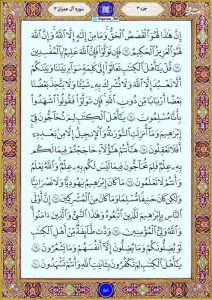 جزء ۳
سورة آل عمران ۳
إِنَّ هَٰذَا لَهُوَ ٱلْقَصَصُ ٱلْحَقُّ وَمَا مِنْ إِلَٰهٍ إِلَّا ٱللَّهُ وَإِنَّ ٱللَّهَ
لَهُوَ ٱلْعَزِيزُ ٱلْحَكِيمُ ۶۲ فَإِن تَوَلَّوْا۟ فَإِنَّ ٱللَّهَ عَلِيمٌۢ بِٱلْمُفْسِدِينَ
۶۳ قُلْ يَٰٓأَهْلَ ٱلْكِتَٰبِ تَعَالَوْا۟ إِلَىٰ كَلِمَةٍ سَوَآءٍۭ بَيْنَنَا وَبَيْنَكُمْ
أَلَّا نَعْبُدَ إِلَّا ٱللَّهَ وَلَا نُشْرِكَ بِهِۦ شَيْـًٔا وَلَا يَتَّخِذَ بَعْضُنَا
بَعْضًا أَرْبَابًا مِّن دُونِ ٱللَّهِ فَإِن تَوَلَّوْا۟ فَقُولُوا۟ ٱشْهَدُوا۟
بِأَنَّا مُسْلِمُونَ ۶۴ يَٰٓأَهْلَ ٱلْكِتَٰبِ لِمَ تُحَآجُّونَ فِىٓ
إِبْرَٰهِيمَ وَمَآ أُنزِلَتِ ٱلتَّوْرَىٰةُ وَٱلْإِنجِيلُ إِلَّا مِنۢ بَعْدِهِۦٓ
أَفَلَا تَعْقِلُونَ ۶۵ هَٰٓأَنتُمْ هَٰٓؤُلَآءِ حَٰجَجْتُمْ فِيمَا لَكُم
بِهِۦ عِلْمٌ فَلِمَ تُحَآجُّونَ فِيمَا لَيْسَ لَكُم بِهِۦ عِلْمٌ وَٱللَّهُ يَعْلَمُ
وَأَنتُمْ لَا تَعْلَمُونَ ۶۶ مَا كَانَ إِبْرَٰهِيمُ يَهُودِيًّا وَلَا نَصْرَانِيًّا
وَلَٰكِن كَانَ حَنِيفًا مُّسْلِمًا وَمَا كَانَ مِنَ ٱلْمُشْرِكِينَ ۶۷ إِنَّ أَوْلَى
ٱلنَّاسِ بِإِبْرَٰهِيمَ لَلَّذِينَ ٱتَّبَعُوهُ وَهَٰذَا ٱلنَّبِىُّ وَٱلَّذِينَ ءَامَنُوا۟
وَٱللَّهُ وَلِىُّ ٱلْمُؤْمِنِينَ ۶۸ وَدَّت طَّآئِفَةٌ مِّنْ أَهْلِ ٱلْكِتَٰبِ
لَوْ يُضِلُّونَكُمْ وَمَا يُضِلُّونَ إِلَّآ أَنفُسَهُمْ وَمَا يَشْعُرُونَ ۶۹
يَٰٓأَهْلَ ٱلْكِتَٰبِ لِمَ تَكْفُرُونَ بِـَٔايَٰتِ ٱللَّهِ وَأَنتُمْ تَشْهَدُونَ ۷۰
۵۸